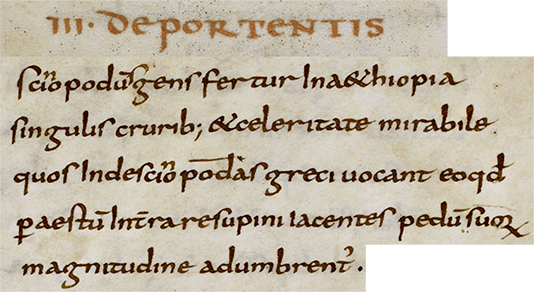 III. DE PORTENTIS
scıopodũ gens fertur In aethiopia
singulis crurib; & celeritate mirabile
quos Inde sciopodas greci uocant eo qđ
ꝑ aestũ In tr̃a resupini iacentes pedũ suoꝝ
magnitudine adumbrent᷑.